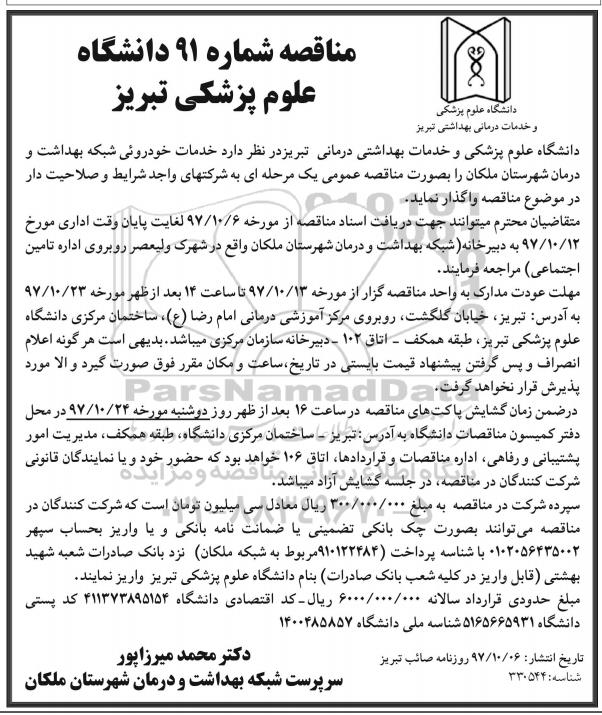 مناقصه شماره ۹۱ دانشگاه
علوم پزشکی تبریز
دانشگاه علوم پزشکی
و خدمات درمانی بهداشتی تبریز
دانشگاه علوم پزشکی و خدمات بهداشتی درمانی تبریزدر نظر دارد خدمات خودروئی شبکه بهداشت و
درمان شهرستان ملکان را بصورت مناقصه عمومی یک مرحله ای به شرکتهای واجد شرایط و صلاحیت دار
در موضوع مناقصه واگذار نماید.
متقاضیان محترم میتوانند جهت دریافت اسناد مناقصه از مورخه ۹۷/۱۰/۶ لغایت پایان وقت اداری مورخ
۹۷/۱۰/۱۲ به دبیرخانه(شبکه بهداشت و درمان شهرستان ملکان واقع در شهرک ولیعصر روبروی اداره تامین
اجتماعی) مراجعه فرمایند.
مهلت عودت مدارک به واحد مناقصه گزار از مورخه ۹۷/۱۰/۱۳ تا ساعت ۱۴ بعد از ظهر مورخه ۹۷/۱۰/۲۳
به آدرس: تبریز، خیابان گلگشت، روبروی مرکز آموزشی درمانی امام رضا (ع)، ساختمان مرکزی دانشگاه
علوم پزشکی تبریز، طبقه همکف - اتاق ۱۰۲ -دبیرخانه سازمان مرکزی میباشد.بدیهی است هر گونه اعلام
انصراف و پس گرفتن پیشنهاد قیمت بایستی در تاریخ،ساعت و مکان مقرر فوق صورت گیرد و الا مورد
پذیرش قرار نخواهد گرفت.
درضمن زمان گشایش پاکت‌های مناقصه در ساعت ۱۶ بعد از ظهر روز دوشنبه مورخه ۹۷/۱۰/۲۴ در محل
دفتر کمیسون مناقصات دانشگاه به آدرس: تبریز - ساختمان مرکزی دانشگاه، طبقه همکف، مدیریت امور
پشتیبانی و رفاهی، اداره مناقصات و قراردادها، اتاق ۱۰۶ خواهد بود که حضور خود و یا نمایندگان قانونی
شرکت کنندگان در مناقصه، در جلسه گشایش آزاد میباشد.
سپرده شرکت در مناقصه به مبلغ ۳۰۰/۰۰۰/۰۰۰ ریال معادل سی میلیون تومان است که شرکت کنندگان در
مناقصه می‌توانند بصورت چک بانکی تضمینی یا ضمانت نامه بانکی و یا واریز بحساب سپهر
۰۱۰۲۰۵۶۴۳۵۰۰۲ با شناسه پرداخت (۹۱۰۱۲۲۴۸۴مربوط به شبکه ملکان) نزد بانک صادرات شعبه شهید
بهشتی (قابل واریز در کلیه شعب بانک صادرات) بنام دانشگاه علوم پزشکی تبریز واریز نمایند.
مبلغ حدودی قرارداد سالانه ۶۰۰۰/۰۰۰/۰۰۰ ریال-کد اقتصادی دانشگاه ۴۱۱۳۷۳۸۹۵۱۵۴ کد پستی
دانشگاه ۵۱۶۵۶۶۵۹۳۱ شناسه ملی دانشگاه ۱۴۰۰۴۸۵۸۵۷
دکتر محمد میرزاپور
سرپرست شبکه بهداشت و درمان شهرستان ملکان
تاریخ انتشار: ۹۷/۱۰/۰۶ روزنامه صائب تبریز
شناسه: ۳۳۰۵۴۴
ParsNamadData
پایگاه اطلاع رسانی مناقصه و مزایده